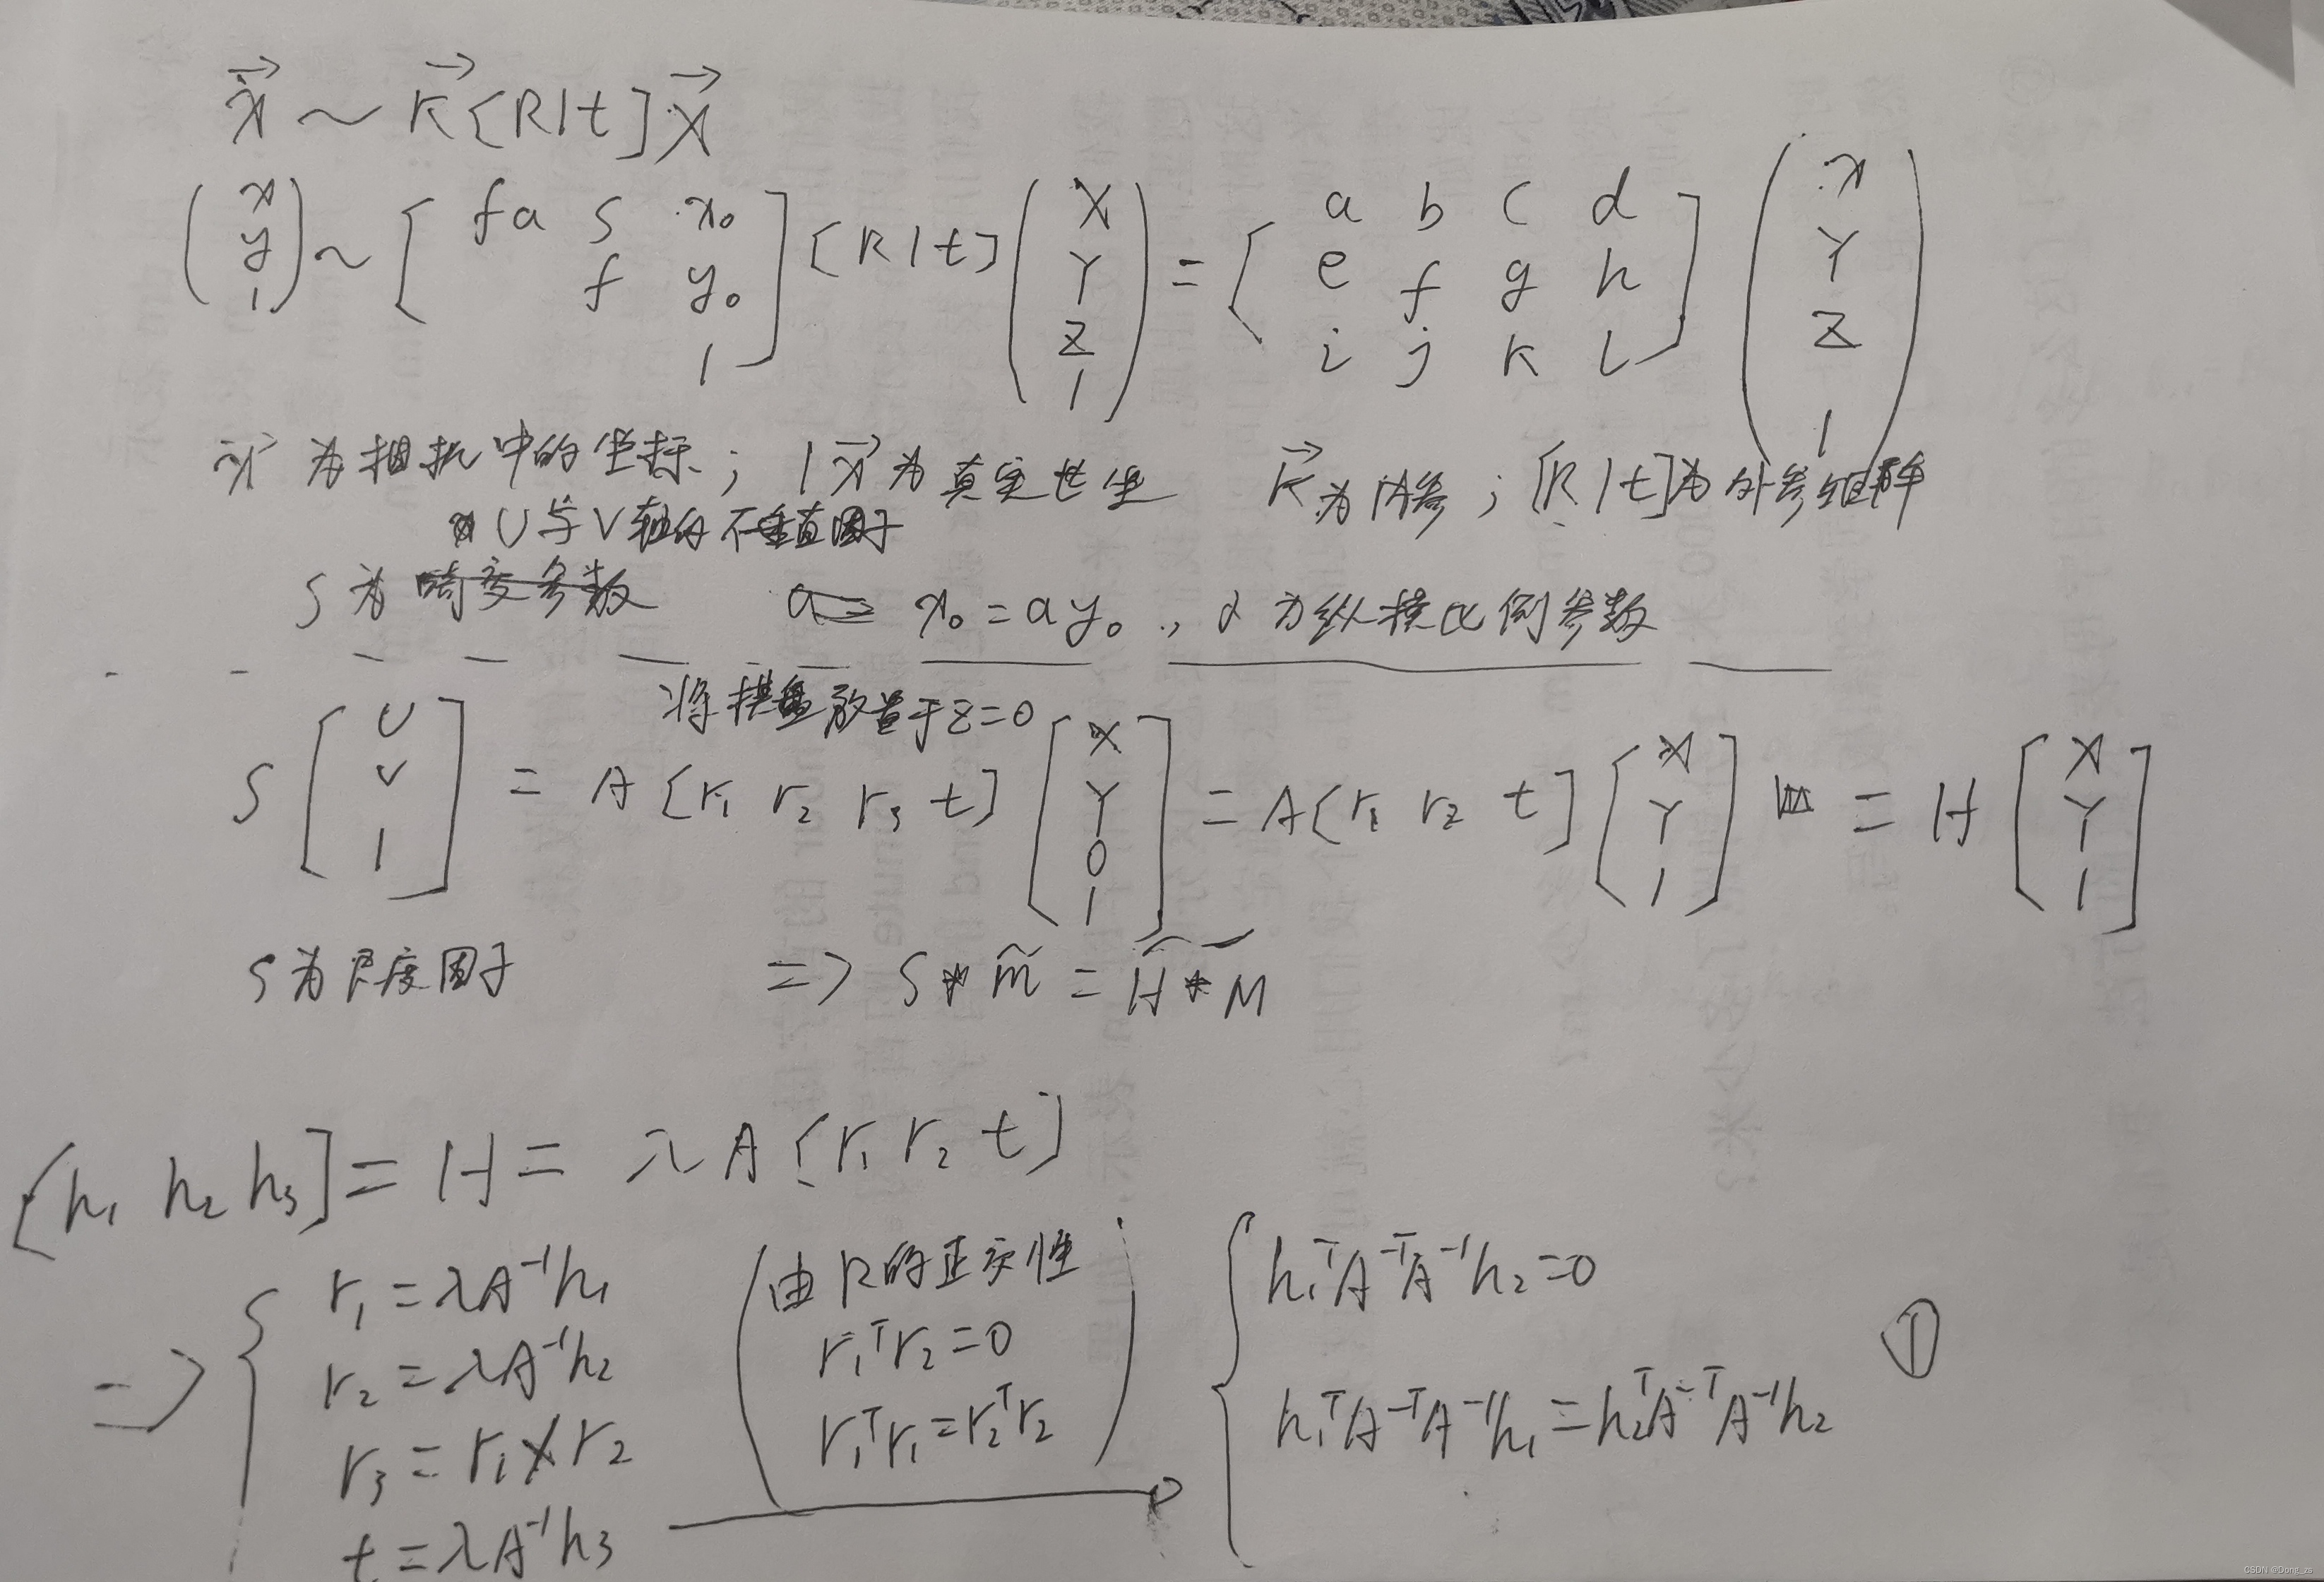 x⃗ ~ K⃗ [R|t] X⃗
(x y 1) ~ [fa s x₀ f y₀ 1] [R|t] (X Y Z 1) = [a b c d e f g h i j k l] (x Y Z 1)
x⃗ 为相机中的坐标; x⃗ 为真实世坐 K⃗ 为内参; [R|t]为外参矩阵
U与V轴的不垂直因子
S为畸变参数 a= x₀=ay₀, α为纵横比例参数
将棋盘放置于z=0
S [U V 1] = A [r₁ r₂ r₃ t] [X Y 0 1] = A [r₁ r₂ t] [X Y 1] = H [X Y 1]
S为尺度因子 => S*m̃ = H*M̃
[h₁ h₂ h₃] = H = λA [r₁ r₂ t]
=> { r₁=λA⁻¹h₁
r₂=λA⁻¹h₂
r₃=r₁×r₂
t=λA⁻¹h₃
(由R的正交性
r₁ᵀr₂=0
r₁ᵀr₁=r₂ᵀr₂)
{ h₁ᵀA⁻ᵀA⁻¹h₂=0
h₁ᵀA⁻ᵀA⁻¹h₁=h₂ᵀA⁻ᵀA⁻¹h₂ ①
CSDN @Dong_zs